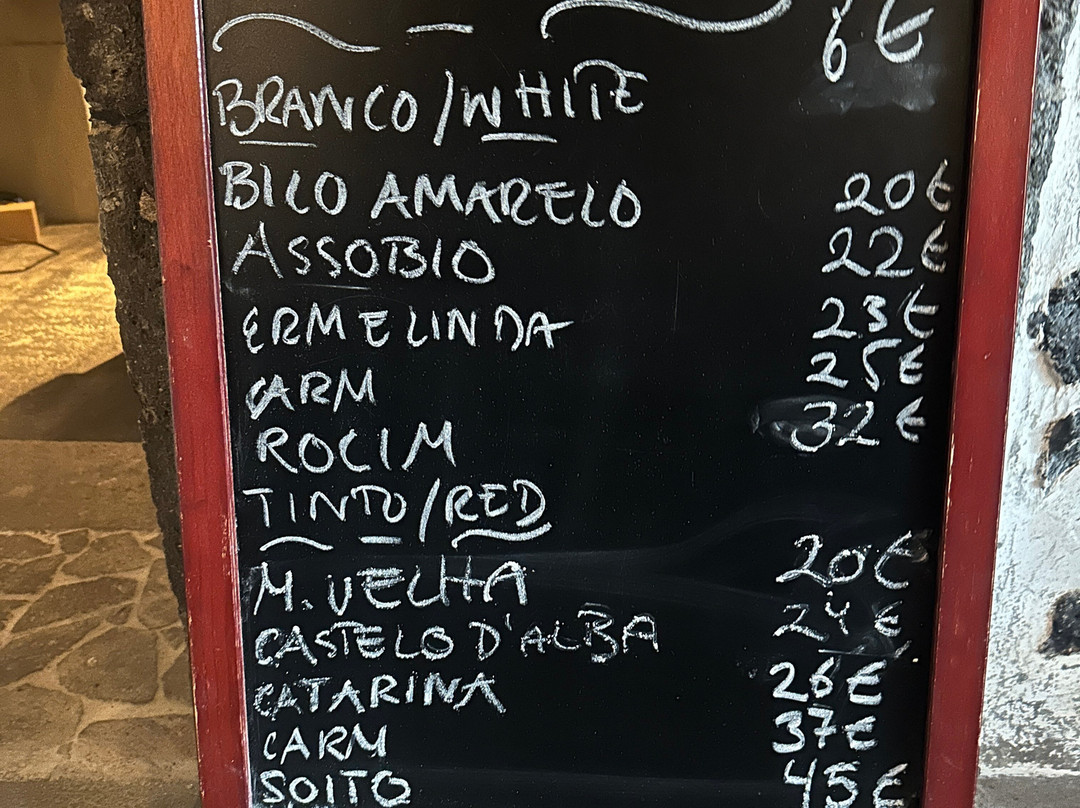 6€
BRANCO/WHITE
BICO AMARELO 20€
ASSOBIO 22€
ERMELINDA 23€
CARM 25€
ROCIM 32€
TINTO/RED
M. VELHA 20€
CASTELO D'ALBA 24€
CATARINA 26€
CARM 37€
SOITO 45€